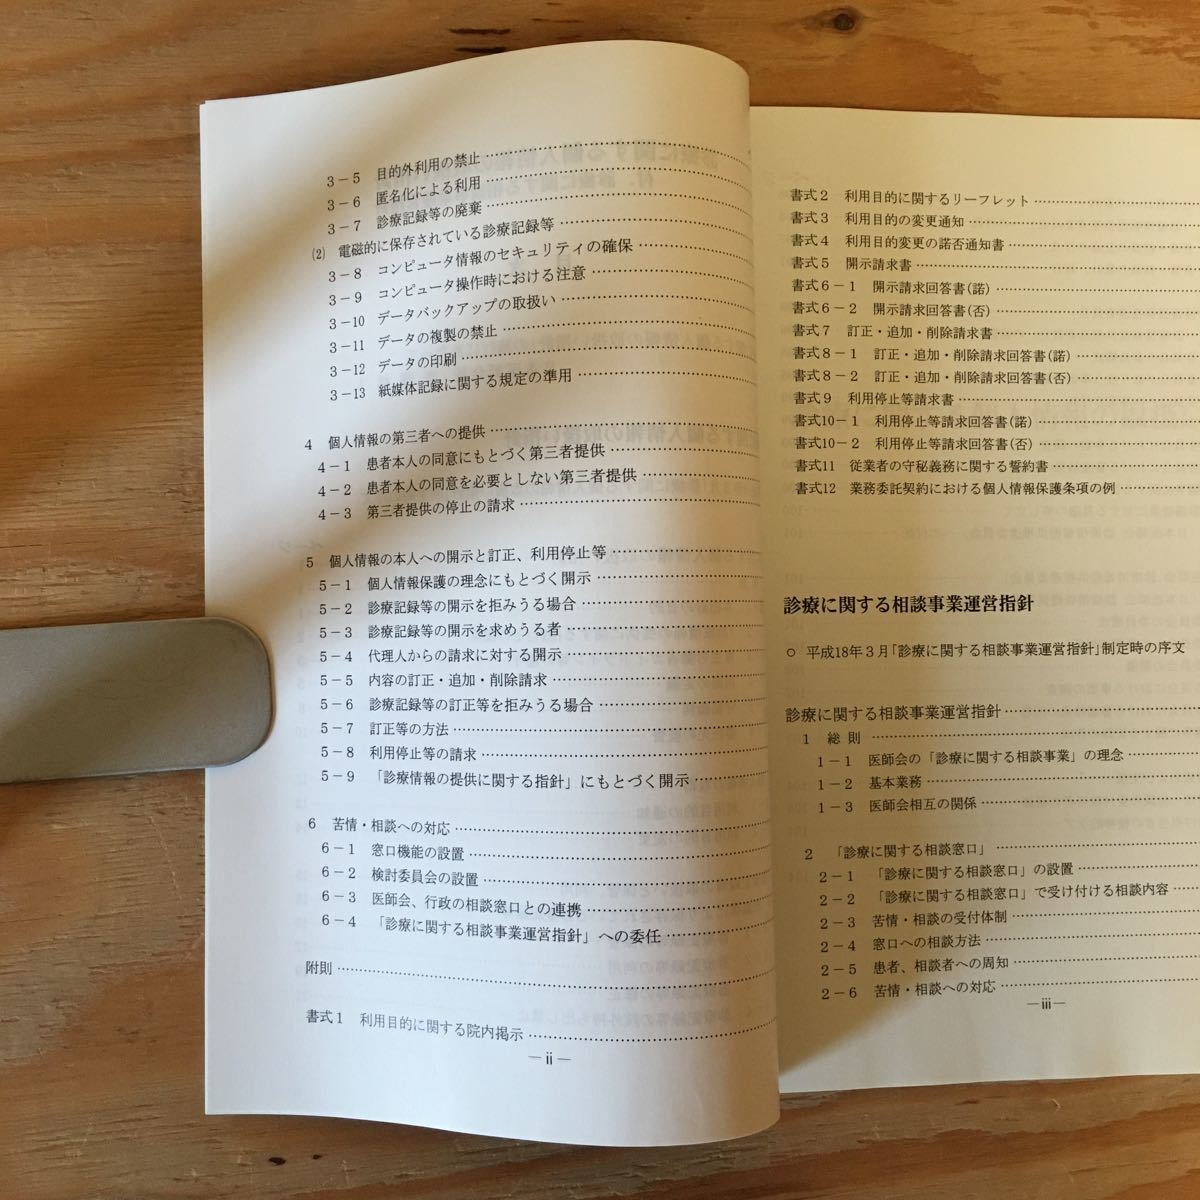 3－5 目的外利用の禁止
3－6 匿名化による利用
3－7 診療記録等の廃棄
(2) 電磁的に保存されている診療記録等
3－8 コンピュータ情報のセキュリティの確保
3－9 コンピュータ操作時における注意
3－10 データバックアップの取扱い
3－11 データの複製の禁止
3－12 データの印刷
3－13 紙媒体記録に関する規定の準用
4 個人情報の第三者への提供
4－1 患者本人の同意にもとづく第三者提供
4－2 患者本人の同意を必要としない第三者提供
4－3 第三者提供の停止の請求
5 個人情報の本人への開示と訂正、利用停止等
5－1 個人情報保護の理念にもとづく開示
5－2 診療記録等の開示を拒みうる場合
5－3 診療記録等の開示を求めうる者
5－4 代理人からの請求に対する開示
5－5 内容の訂正・追加・削除請求
5－6 診療記録等の訂正等を拒みうる場合
5－7 訂正等の方法
5－8 利用停止等の請求
5－9 「診療情報の提供に関する指針」にもとづく開示
6 苦情・相談への対応
6－1 窓口機能の設置
6－2 検討委員会の設置
6－3 医師会、行政の相談窓口との連携
6－4 「診療に関する相談事業運営指針」への委任
附則
書式1 利用目的に関する院内掲示
－ii－
書式2 利用目的に関するリーフレット
書式3 利用目的の変更通知
書式4 利用目的変更の諾否通知書
書式5 開示請求書
書式6－1 開示請求回答書(諾)
書式6－2 開示請求回答書(否)
書式7 訂正・追加・削除請求書
書式8－1 訂正・追加・削除請求回答書(諾)
書式8－2 訂正・追加・削除請求回答書(否)
書式9 利用停止等請求書
書式10－1 利用停止等請求回答書(諾)
書式10－2 利用停止等請求回答書(否)
書式11 従業者の守秘義務に関する誓約書
書式12 業務委託契約における個人情報保護条項の例
診療に関する相談事業運営指針
○ 平成18年3月「診療に関する相談事業運営指針」制定時の序文
診療に関する相談事業運営指針
1 総則
1－1 医師会の「診療に関する相談事業」の理念
1－2 基本業務
1－3 医師会相互の関係
2 「診療に関する相談窓口」
2－1 「診療に関する相談窓口」の設置
2－2 「診療に関する相談窓口」で受け付ける相談内容
2－3 苦情・相談の受付体制
2－4 窓口への相談方法
2－5 患者、相談者への周知
2－6 苦情・相談への対応
－iii－